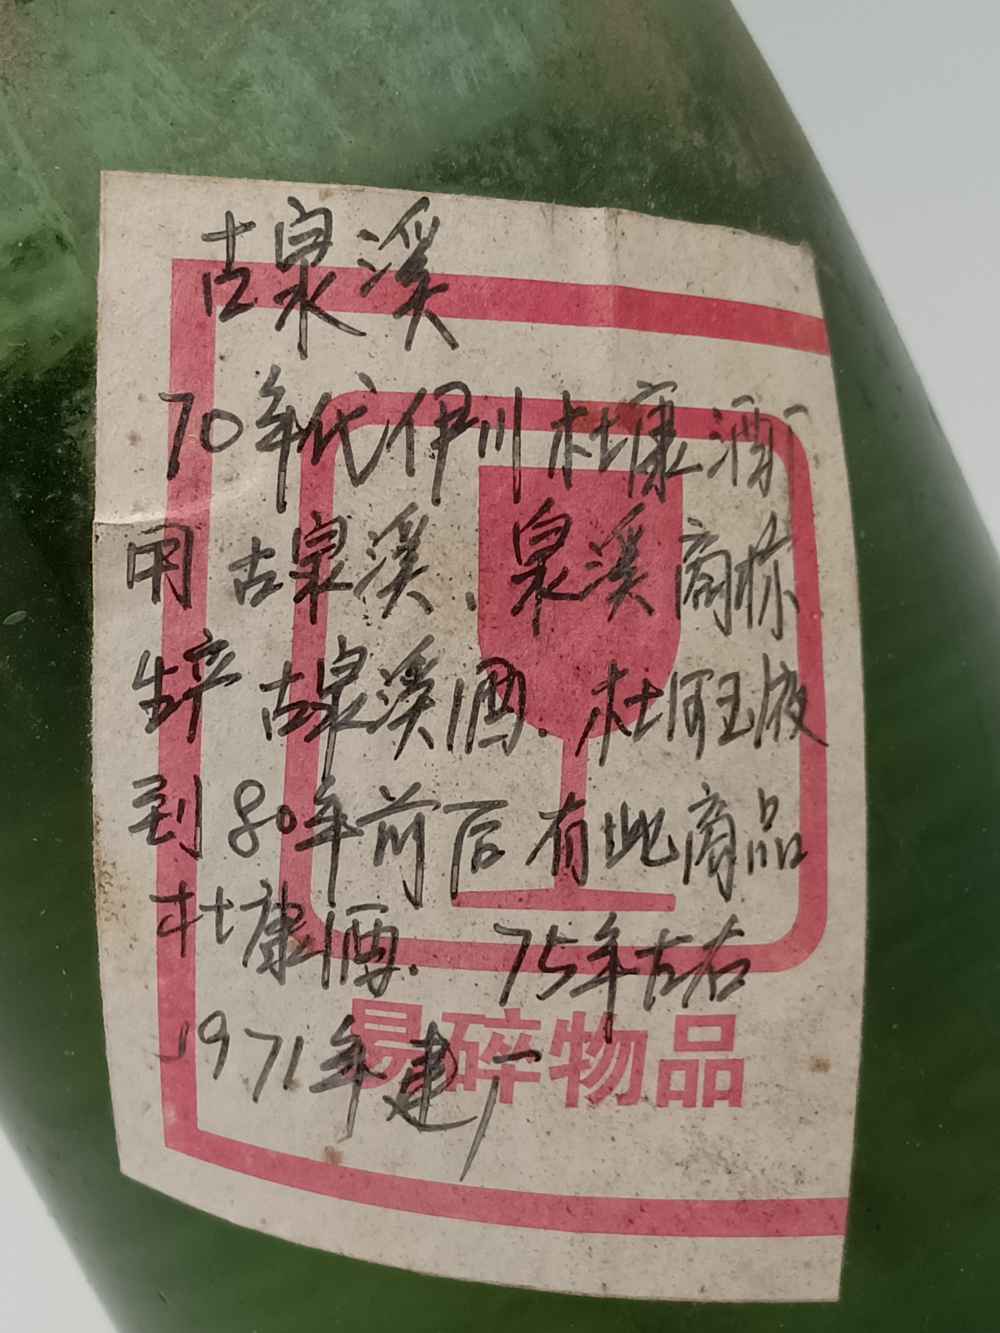 古泉溪
70年代伊川杜康酒厂
用古泉溪、泉溪商标
生产古泉溪酒.杜河玉液
到80年前后有此商品
杜康酒. 75年左右
1971年建厂
易碎物品